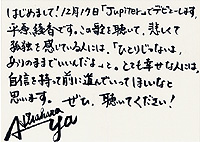 はじめまして！12月17日「Jupiter」でデビューします、
平原綾香です。この歌を聴いて、悲しくて
孤独を感じている人には、「ひとりじゃない、
ありのままでいいんだよ」と。とても幸せな人には、
自信を持って前に進んでいってほしいなと
思います。ぜひ、聴いてください！
A.Hirahara
ya